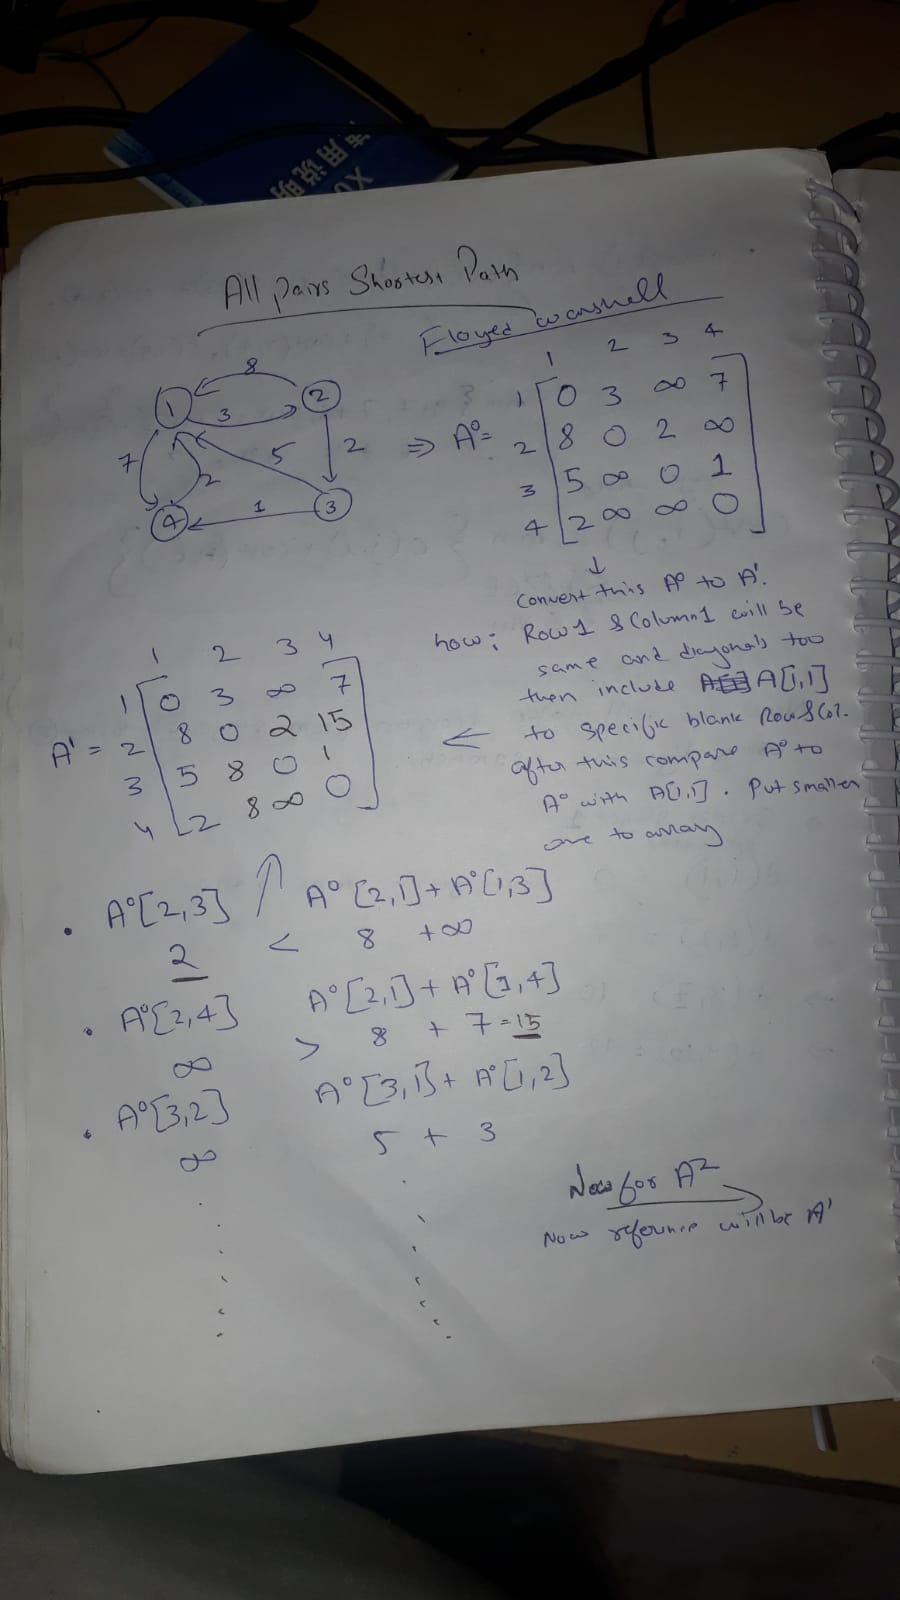 XU
使用说明
All pairs Shortest Path
Floyed warshell
8
1 2
3
7 2 5 2
4 1 3
1 2 3 4
1 0 3 ∞ 7
⇒ A⁰= 2 8 0 2 ∞
3 5 ∞ 0 1
4 2 ∞ ∞ 0
↓
Convert this A⁰ to A¹.
how: Row 1 & Column 1 will be
same and diagonals too
then include A[1,1]
← to specific blank Row & Col.
after this compare A⁰ to
A⁰ with A[1,1]. Put smaller
one to array
1 2 3 4
1 0 3 ∞ 7
A¹ = 2 8 0 2 15
3 5 8 0 1
4 2 8 ∞ 0
. A⁰[2,3] A⁰[2,1]+ A⁰[1,3]
2 < 8 +∞
. A⁰[2,4] A⁰[2,1]+ A⁰[1,4]
∞ > 8 + 7=15
. A⁰[3,2] A⁰[3,1]+ A⁰[1,2]
∞ 5 + 3
Now for A²
Now reference will be A¹